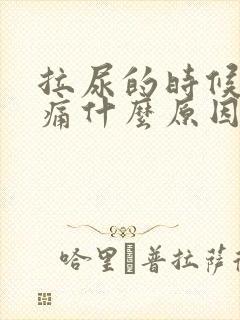 拉尿的時候
痛什麼原因
哈里�普拉薩